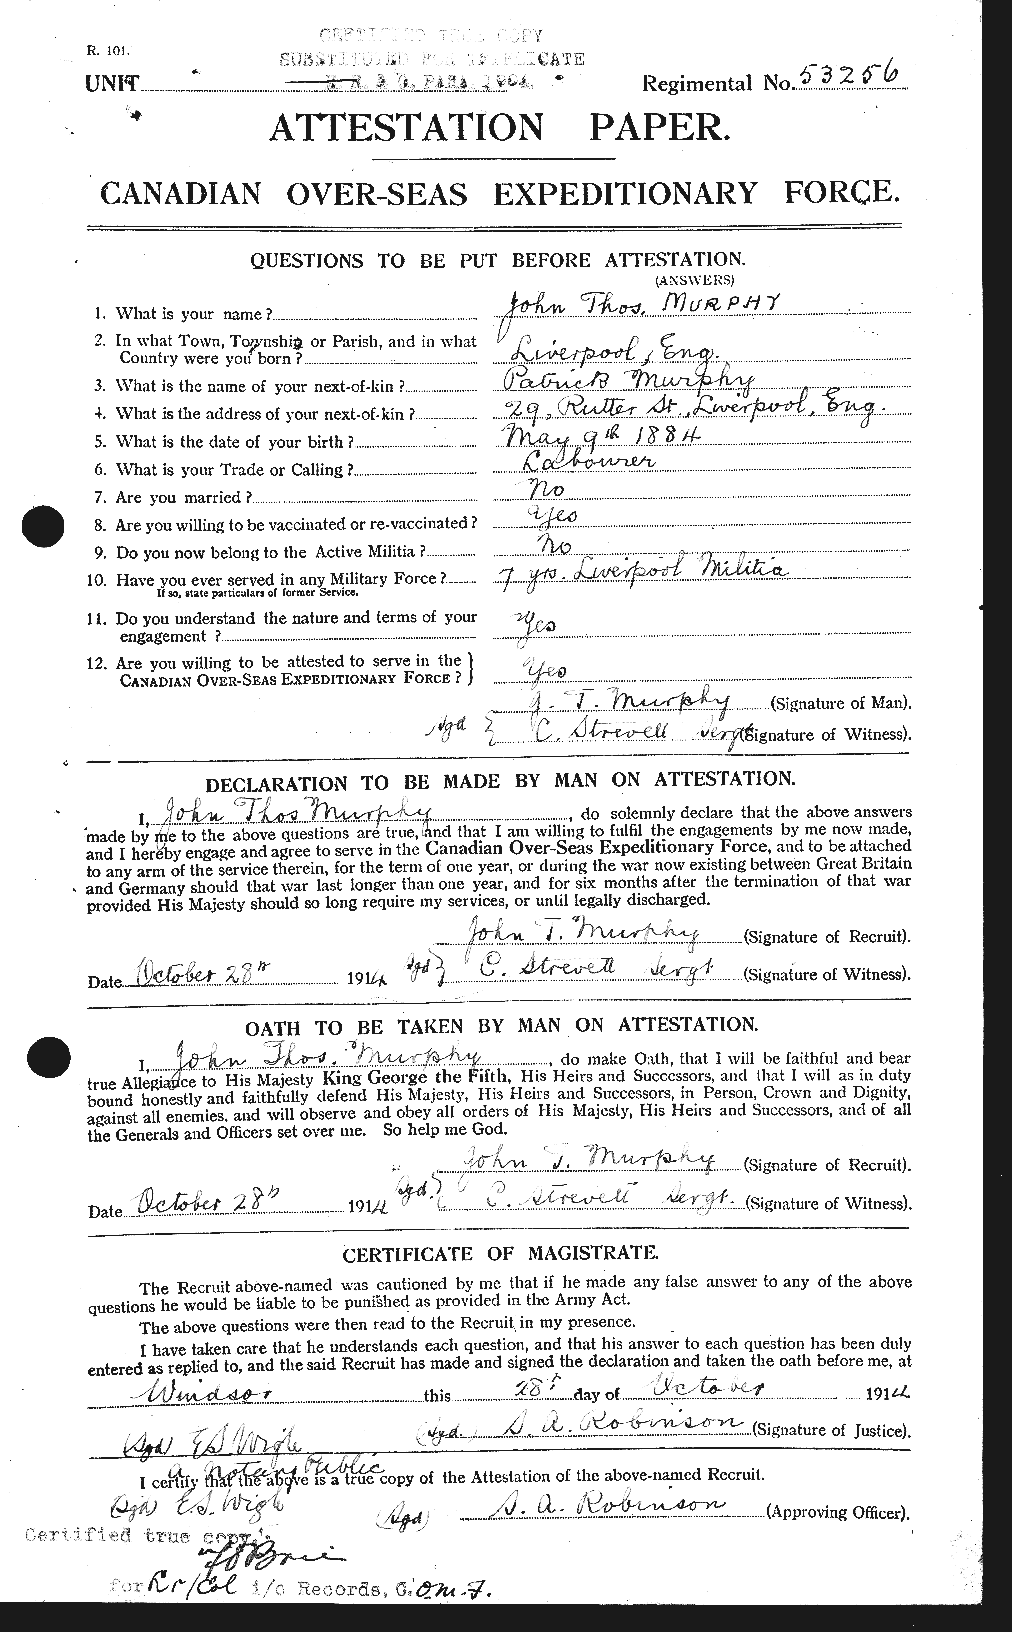 CERTIFIED TRUE COPY
R. 101.
SUBSTITUTED FOR TRIPLICATE
UNIT
Regimental No. 53256
ATTESTATION PAPER.
CANADIAN OVER-SEAS EXPEDITIONARY FORCE.
QUESTIONS TO BE PUT BEFORE ATTESTATION.
(ANSWERS)
1. What is your name? John Thos. MURPHY
2. In what Town, Township or Parish, and in what
Country were you born? Liverpool, Eng.
3. What is the name of your next-of-kin? Patrick Murphy
4. What is the address of your next-of-kin? 29, Rutter St., Liverpool, Eng.
5. What is the date of your birth? May 9th 1884
6. What is your Trade or Calling? Labourer
7. Are you married? No
8. Are you willing to be vaccinated or re-vaccinated? Yes
9. Do you now belong to the Active Militia? No
10. Have you ever served in any Military Force? 7 yrs. Liverpool Militia
If so, state particulars of former Service.
11. Do you understand the nature and terms of your
engagement? Yes
12. Are you willing to be attested to serve in the
CANADIAN OVER-SEAS EXPEDITIONARY FORCE? Yes
J. T. Murphy (Signature of Man).
Sgd C. Strevell Sergt (Signature of Witness).
DECLARATION TO BE MADE BY MAN ON ATTESTATION.
I, John Thos Murphy, do solemnly declare that the above answers
made by me to the above questions are true, and that I am willing to fulfil the engagements by me now made,
and I hereby engage and agree to serve in the Canadian Over-Seas Expeditionary Force, and to be attached
to any arm of the service therein, for the term of one year, or during the war now existing between Great Britain
and Germany should that war last longer than one year, and for six months after the termination of that war
provided His Majesty should so long require my services, or until legally discharged.
John T. Murphy (Signature of Recruit).
Date October 28th 1914 Sgd C. Strevell Sergt (Signature of Witness).
OATH TO BE TAKEN BY MAN ON ATTESTATION.
I, John Thos. Murphy, do make Oath, that I will be faithful and bear
true Allegiance to His Majesty King George the Fifth, His Heirs and Successors, and that I will as in duty
bound honestly and faithfully defend His Majesty, His Heirs and Successors, in Person, Crown and Dignity,
against all enemies, and will observe and obey all orders of His Majesty, His Heirs and Successors, and of all
the Generals and Officers set over me. So help me God.
John T. Murphy (Signature of Recruit).
Date October 28th 1914 Sgd. C. Strevell Sergt. (Signature of Witness).
CERTIFICATE OF MAGISTRATE.
The Recruit above-named was cautioned by me that if he made any false answer to any of the above
questions he would be liable to be punished as provided in the Army Act.
The above questions were then read to the Recruit in my presence.
I have taken care that he understands each question, and that his answer to each question has been duly
entered as replied to, and the said Recruit has made and signed the declaration and taken the oath before me, at
Windsor this 28th day of October 1914
(Sgd) E S Wigle (Sgd.) S. A. Robinson (Signature of Justice).
A Notary Public
I certify that the above is a true copy of the Attestation of the above-named Recruit.
(Sgd) E.S. Wigle (Sgd) S. A. Robinson (Approving Officer).
Certified true copy.
for Lr/Col i/c Records, C.O.M.F.